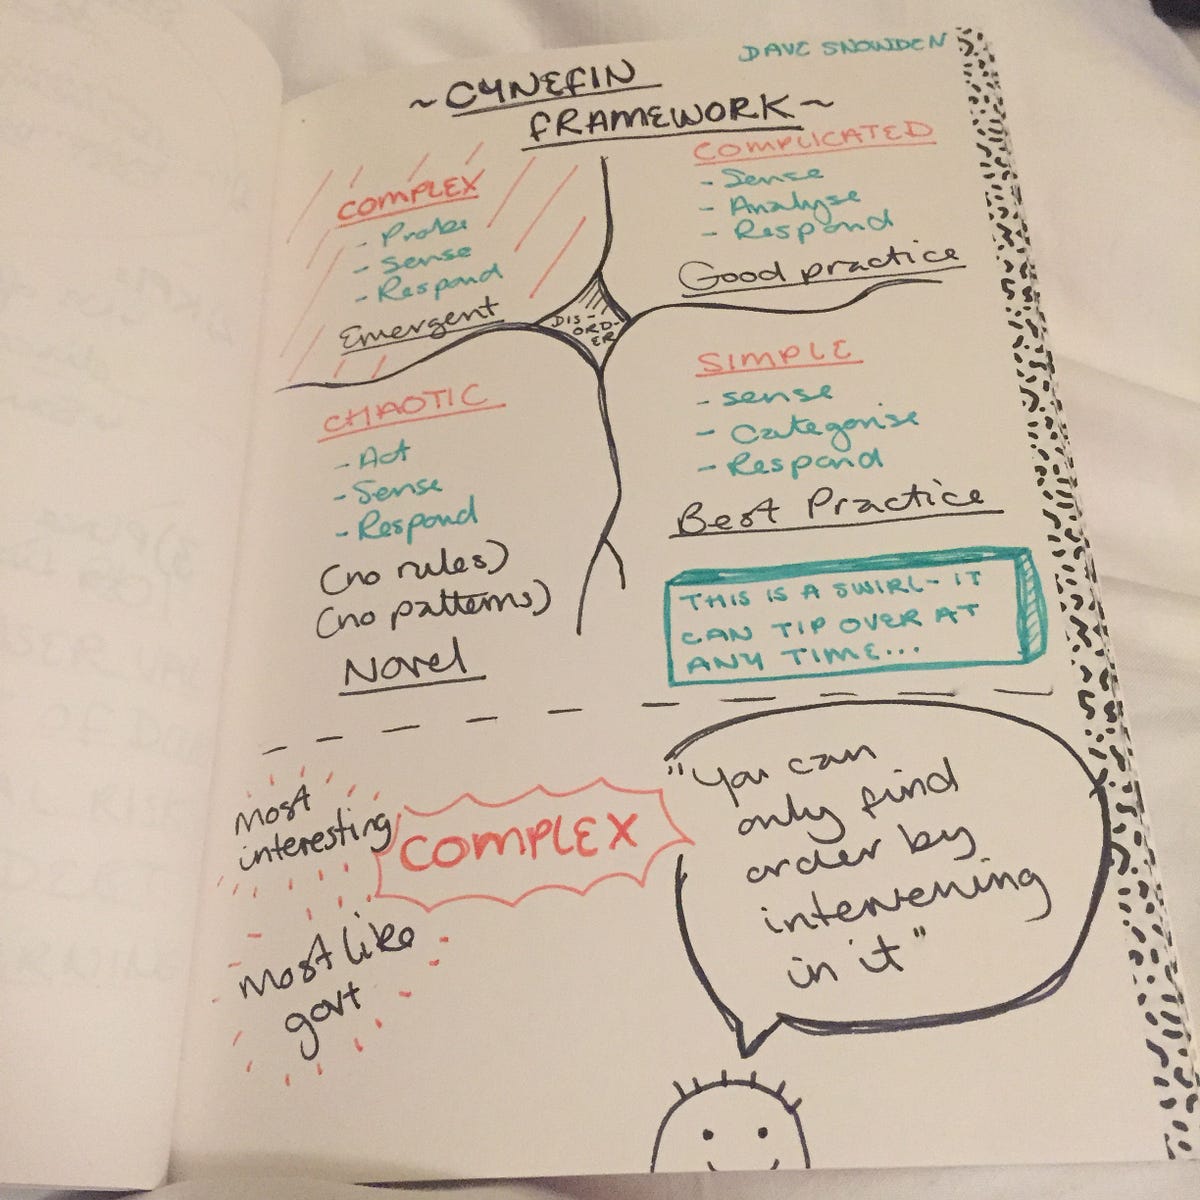 DAVE SNOWDEN
~CYNEFIN
FRAMEWORK~
COMPLEX
- Probe
- Sense
- Respond
Emergent
COMPLICATED
- Sense
- Analyse
- Respond
Good practice
DIS-
ORD-
ER
CHAOTIC
- Act
- Sense
- Respond
(no rules)
(no patterns)
Novel
SIMPLE
- sense
- Categorise
- Respond
Best Practice
THIS IS A SWIRL - IT
CAN TIP OVER AT
ANY TIME...
most
interesting
COMPLEX
most like
govt
"You can
only find
order by
intervening
in it"